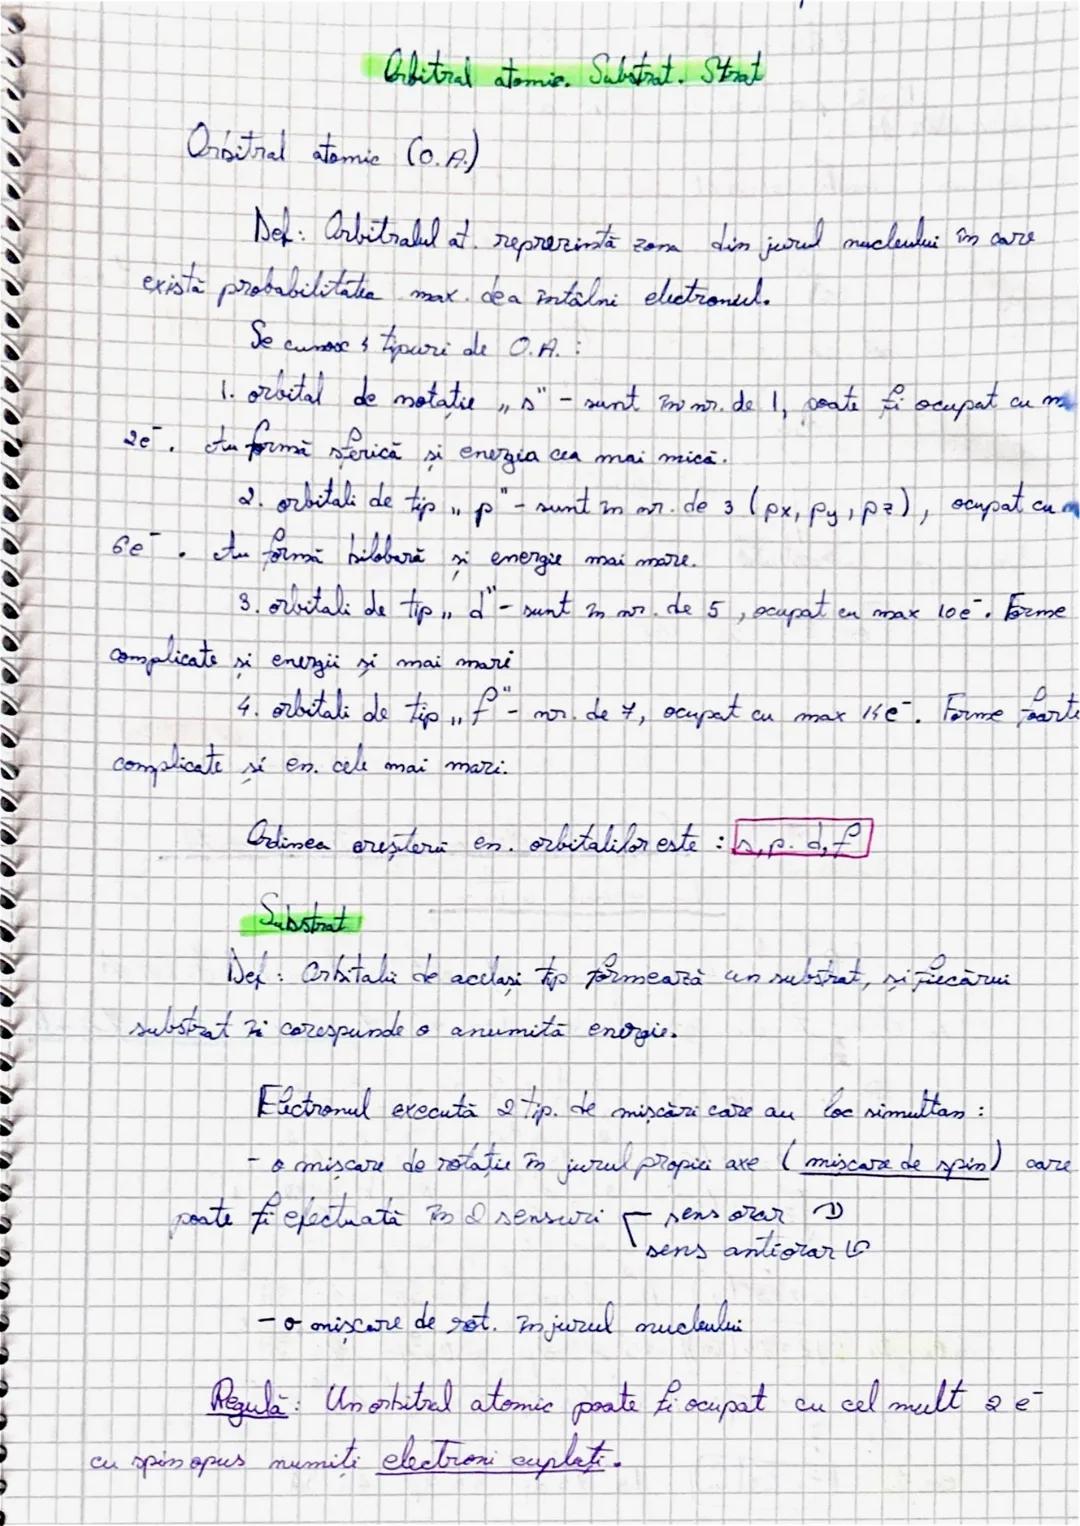 Orbitral atomic. Substrat. Strat
Orbitral atomic (O.A.)
Def: Orbitralul at. reprezintă zona din jurul nucleului în care
există probabilitatea max. de a întâlni electronul.
Se cunosc 4 tipuri de O.A. :
1. orbital de notație „s" - sunt în nr. de 1, poate fi ocupat cu
2e⁻. Au formă sferică și energia cea mai mică.
2. orbitali de tip „p" - sunt în nr. de 3 (px, py, pz), ocupat cu
6e⁻. Au formă bilobară și energie mai mare.
3. orbitali de tip „d" - sunt în nr. de 5, ocupat cu max 10e⁻. Forme
complicate și energii și mai mari
4. orbitali de tip „f" - nr. de 7, ocupat cu max 14e⁻. Forme foarte
complicate și en. cele mai mari.
Ordinea creșterii en. orbitalilor este : s, p. d, f
Substrat
Def : Orbitalii de același tip formează un substrat, și fiecărui
substrat îi corespunde o anumită energie.
Electronul execută 2 tip. de mișcări care au loc simultan :
- o mișcare de rotație în jurul propriei axe (mișcare de spin) care
poate fi efectuată în 2 sensuri sens orar
sens antiorar
- o mișcare de rot. în jurul nucleului
Regulă: Un orbitral atomic poate fi ocupat cu cel mult 2 e⁻
cu spin opus numiți electroni cuplați.